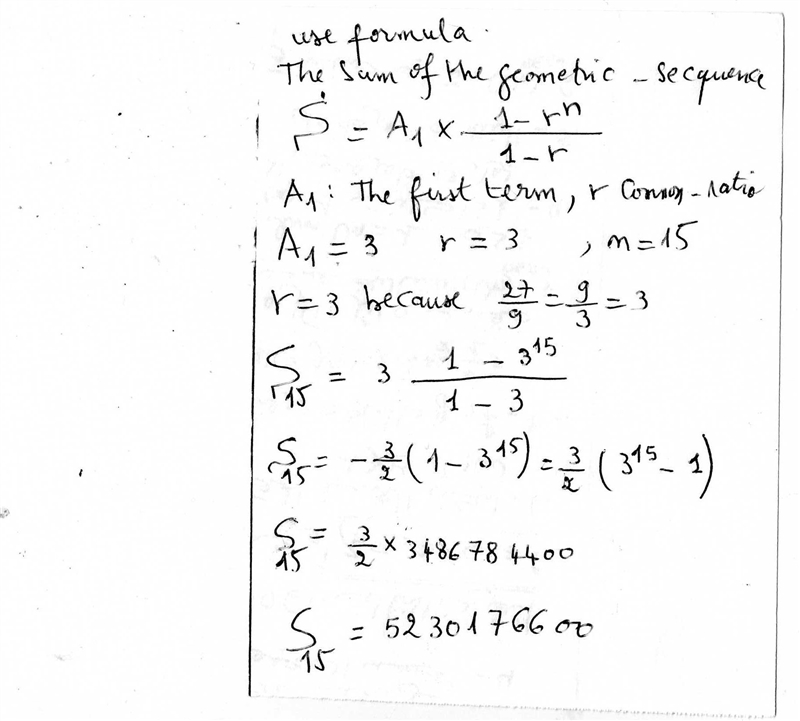 use formula.
The sum of the geometric - secquence
S = A₁ × (1 - rⁿ)/(1 - r)
A₁ : The first term, r Common - ratio
A₁ = 3 r = 3 , n = 15
r = 3 because 27/9 = 9/3 = 3
S₁₅ = 3 (1 - 3¹⁵)/(1 - 3)
S₁₅ = -3/2 (1 - 3¹⁵) = 3/2 (3¹⁵ - 1)
S₁₅ = 3/2 × 3486784400
S₁₅ = 5230176600